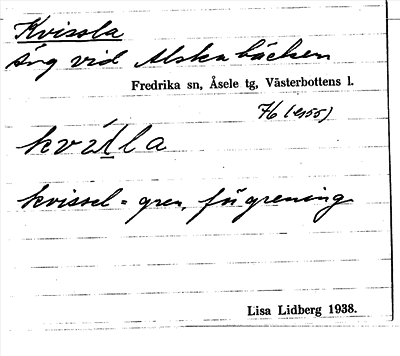 Kvissla
äng vid Alskabäcken
Fredrika sn, Åsele tg, Västerbottens l.
76 (955)
kvissel = gren, förgrening
Lisa Lidberg 1938.